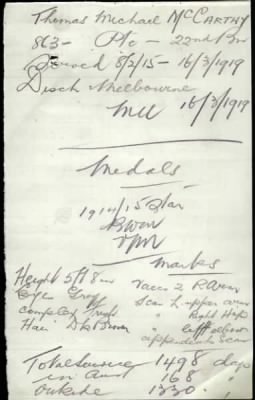 Thomas Michael McCARTHY
863 - Pte - 22nd Bn
Served 8/2/15 - 16/3/1919
Disch Melbourne
MU 16/3/1919
Medals
1914/15 Star
BWM
VM
Marks
Height 5ft 8 ins Vacc 2 R Arm
Eyes Grey Scar L upper arm
complex fresh " Right Hip
Hair Dk Brown " left elbow
appendix scar
Total Service 1498 days
in Aus 168 "
Outside 1330 "